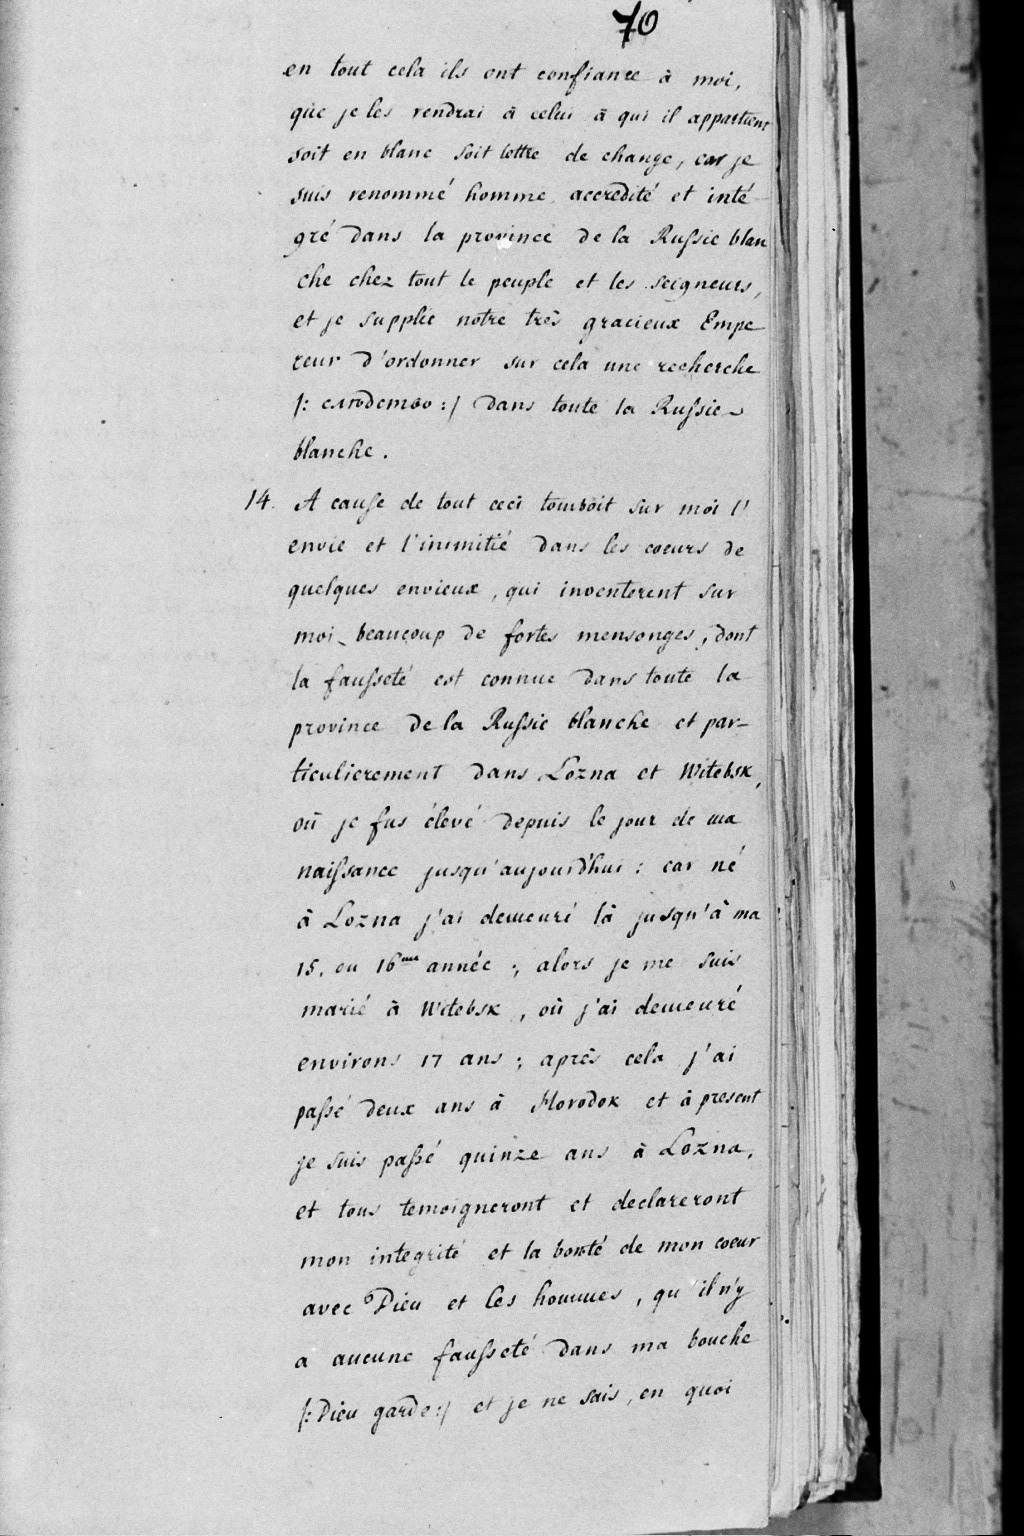 70
en tout cela ils ont confiance à moi,
que je les rendrai à celui à qui il appartient
soit en blanc soit lettre de change, car je
suis renommé homme accredité et inté
gré dans la province de la Russie blan
che chez tout le peuple et les seigneurs,
et je supplie notre très gracieux Empe
reur d'ordonner sur cela une recherche
/: слѣдство :/ dans toute la Russie
blanche.
14. A cause de tout ceci tomboit sur moi l'
envie et l'inimitié dans les coeurs de
quelques envieux, qui inventerent sur
moi beaucoup de fortes mensonges, dont
la fausseté est connue dans toute la
province de la Russie blanche et par-
ticulierement dans Lozna et Witebsk,
où je fus élevé depuis le jour de ma
naissance jusqu'aujourd'hui: car né
à Lozna j'ai demeuré là jusqu'à ma
15. ou 16me année; alors je me suis
marié à Witebsk, où j'ai demeuré
environs 17 ans; après cela j'ai
passé deux ans à Horodok et à present
je suis passé quinze ans à Lozna,
et tous temoigneront et declareront
mon integrité et la bonté de mon coeur
avec Dieu et les hommes, qu'il n'y
a aucune fausseté dans ma bouche
/: Dieu garde :/ et je ne sais, en quoi